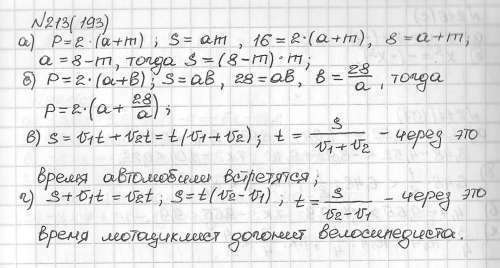 №213(193)
а) P=2·(a+m); S=am, 16=2·(a+m), 8=a+m;
a=8-m, тогда S=(8-m)·m;
б) P=2·(a+b); S=ab, 28=ab, b=28/a, тогда
P=2·(a+28/a);
в) S=v₁t+v₂t=t(v₁+v₂); t=S/(v₁+v₂) - через это
время автомобили встретятся;
г) S+v₁t=v₂t; S=t(v₂-v₁); t=S/(v₂-v₁) - через это
время мотоциклист догонит велосипедиста.